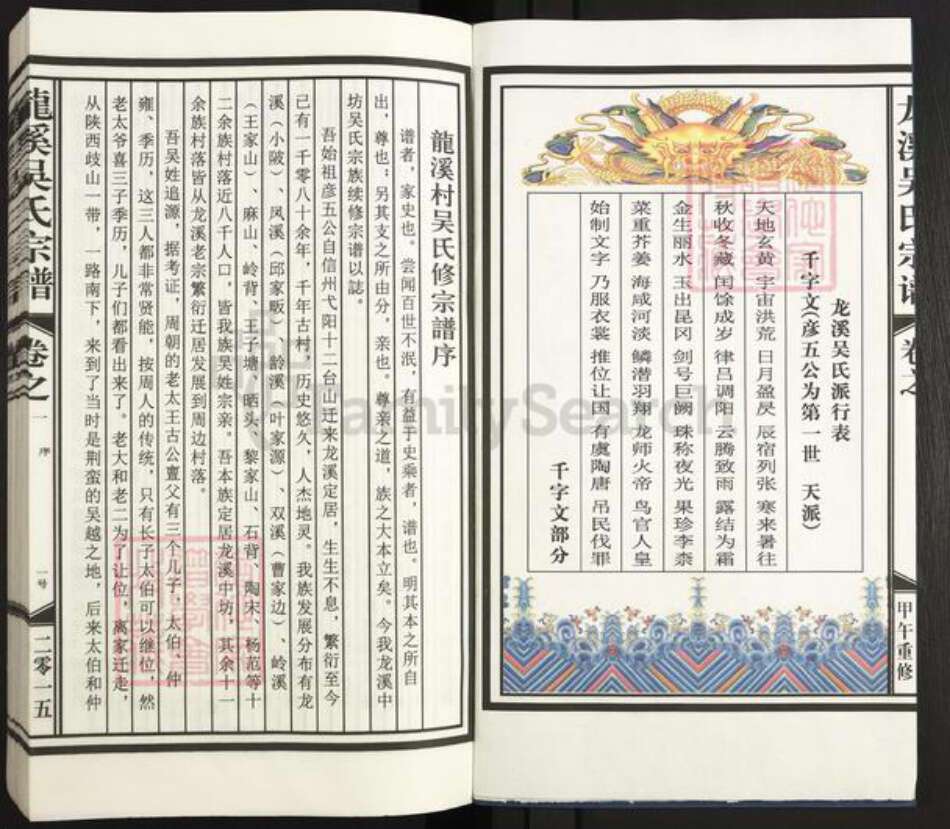 龙溪吴氏派行表
千字文(彦五公为第一世 天派)
天地玄黄 宇宙洪荒 日月盈昃 辰宿列张 寒来暑往
秋收冬藏 闰馀成岁 律吕调阳 云腾致雨 露结为霜
金生丽水 玉出昆冈 剑号巨阙 珠称夜光 果珍李柰
菜重芥姜 海咸河淡 鳞潜羽翔 龙师火帝 鸟官人皇
始制文字 乃服衣裳 推位让国 有虞陶唐 吊民伐罪
千字文部分
龙溪吴氏宗谱
卷之
甲午重修
龍溪村吴氏修宗譜序
谱者，家史也。尝闻百世不泯，有益于史乘者，谱也。明其本之所自
出，尊也；另其支之所由分，亲也。尊亲之道，族之大本立矣。今我龙溪中
坊吴氏宗族续修宗谱以誌。
吾始祖彦五公自信州弋阳十二台山迁来龙溪定居，生生不息，繁衍至今
己有一千零八十余年，千年古村，历史悠久，人杰地灵。我族发展分布有龙
溪（小陂）、凤溪（邱家畈）、龄溪（叶家源）、双溪（曹家边）、岭溪
（王家山）、麻山、岭背、王子塘、晒头、黎家山、石背、陶宋、杨范等十
二余族村落近八千人口，皆我族吴姓宗亲。吾本族定居龙溪中坊，其余十一
余族村落皆从龙溪老宗繁衍迁居发展到周边村落。
吾吴姓追源，据考证，周朝的老太王古公亶父有三个儿子，太伯、仲
雍、季历，这三人都非常贤能，按周人的传统，只有长子太伯可以继位，然
老太爷喜三子季历，儿子们都看出来了。老大和老二为了让位，离家迁走，
从陕西歧山一带，一路南下，来到了当时是荆蛮的吴越之地，后来太伯和仲
龍溪吴氏宗譜
卷之一
序
一号
二零一五
FamilySearch